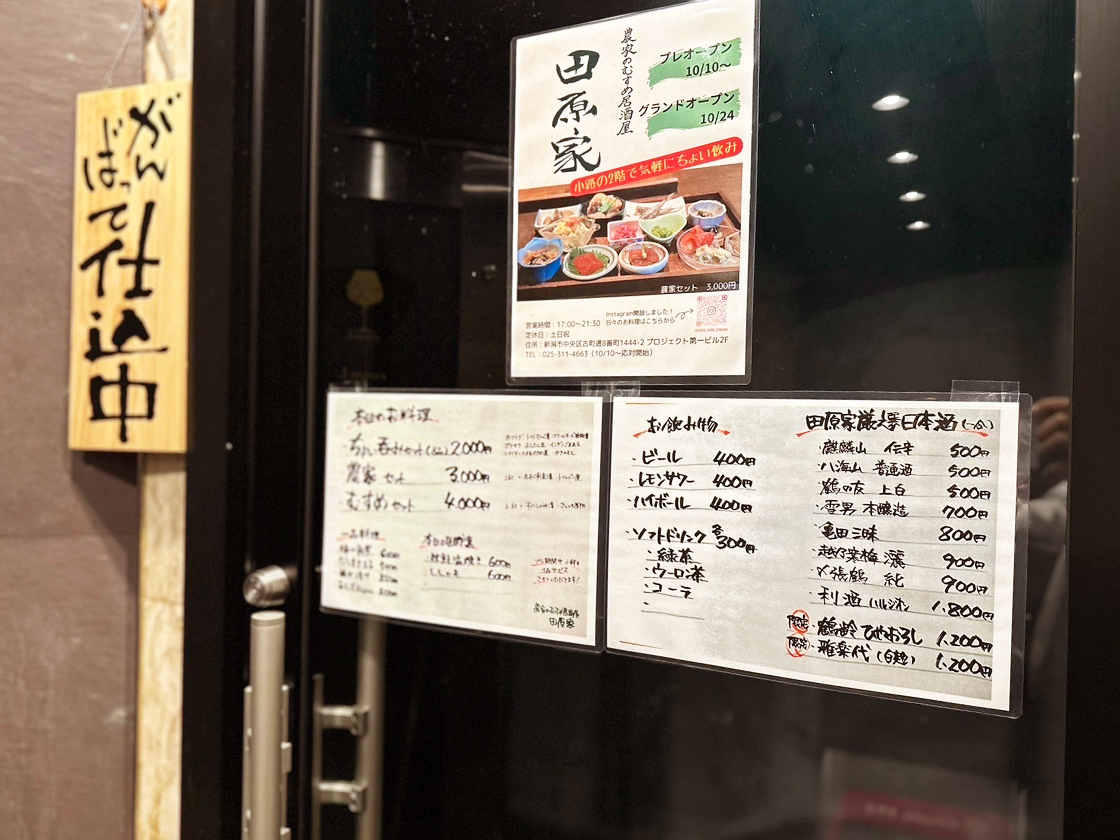 がんばって仕込中
農家のむすめ居酒屋
田原家
プレオープン
10/10〜
グランドオープン
10/24
小路の2階で気軽にちょい飲み
農家セット 3,000円
Instagram開設しました！
日々のお料理はこちらから
営業時間：17:00〜21:30
定休日：土日祝
住所：新潟市中央区古町通8番町1444-2 プロジェクト第一ビル2F
TEL：025-311-4663（10/10〜応対開始）
本日のお料理
・ちょい呑みセット 2,000円
農家セット 3,000円
・むすめセット 4,000円
一品料理
600円
500円
本日の
焼鮭塩焼き 600円
ししゃも 600円
田原家
お飲み物
・ビール 400円
・レモンサワー 400円
・ハイボール 400円
・ソフトドリンク 各300円
・緑茶
・ウーロン茶
・コーラ
田原家厳選日本酒（一合）
・麒麟山 伝辛 500円
・八海山 普通酒 500円
・鶴の友 上白 500円
・雪男 本醸造 700円
・亀田三昧 800円
・越乃寒梅 灑 900円
・〆張鶴 純 900円
・利酒 1,800円
限定・鶴齢 ひやおろし 1,200円
限定・雅楽代 1,200円